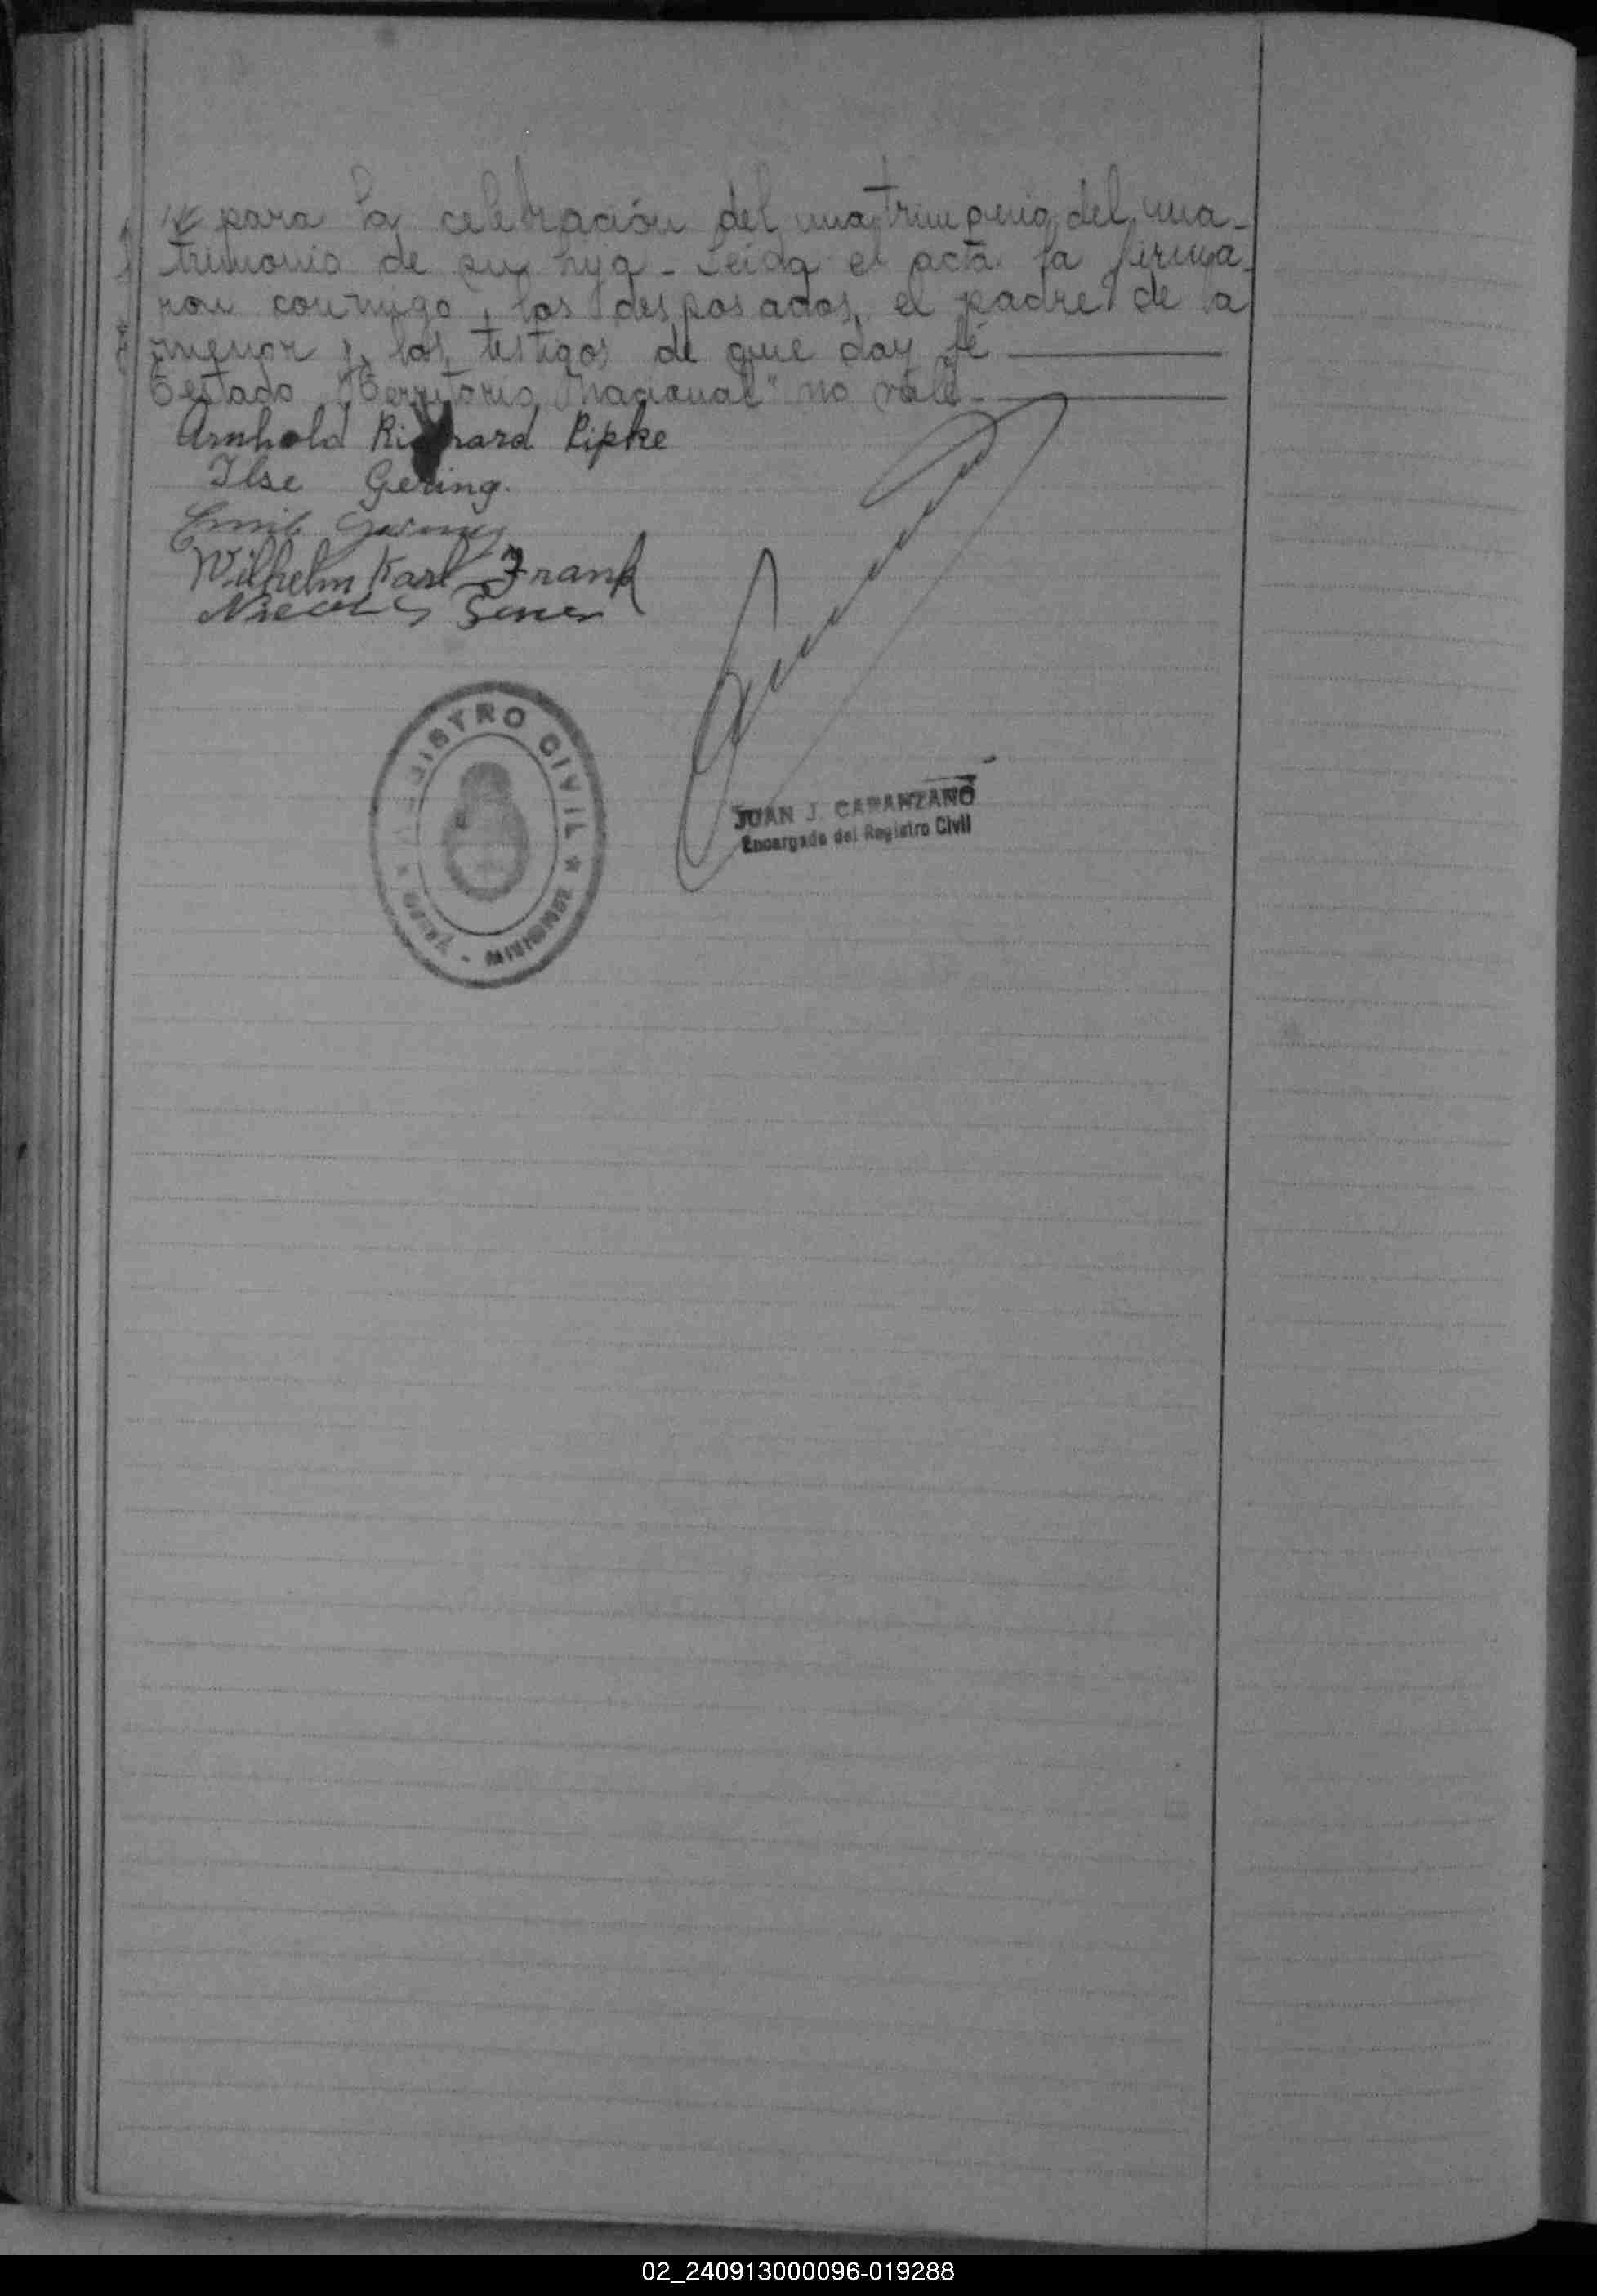 para la celebración del matrimonio del ma-
trimonio de su hija - Leida el acta la firma-
ron conmigo, los desposados, el padre de la
menor y los testigos de que doy fé
Testado "Territorio Nacional" no vale.-
Arnhold Richard Pipke
Ilse Gering.
Emil Gering
Wilhelm Karl Frank
JUAN J. CARANZANO
Encargado del Registro Civil
REGISTRO CIVIL * MISIONES
02_240913000096-019288